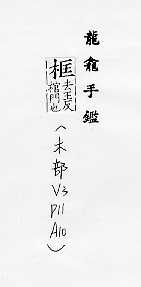 龍龕手鑑
框去王反棺門也
(木部
V3
P11
A10)